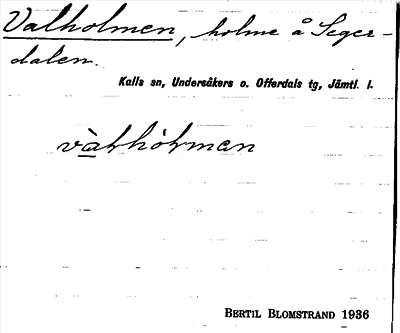 Valholmen, holme å Seger-
dalen.
Kalls sn, Undersåkers o. Offerdals tg, Jämtl. l.
vàɫhòɫmen
BERTIL BLOMSTRAND 1936